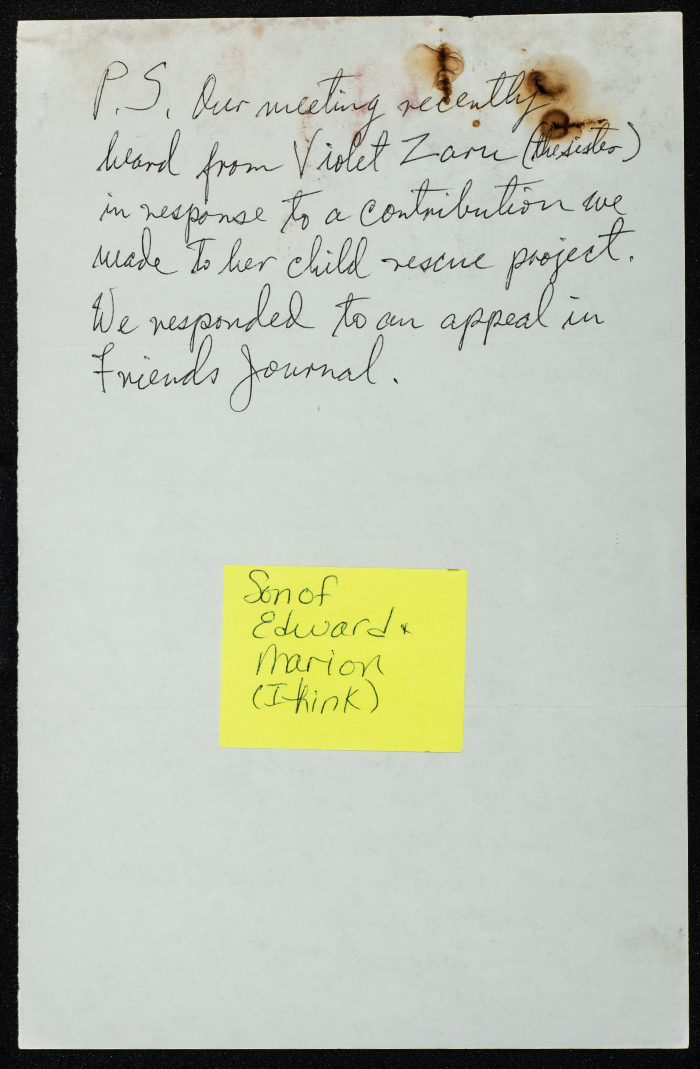 P.S. Our meeting recently
heard from Violet Zaru (the sister)
in response to a contribution we
made to her child rescue project.
We responded to an appeal in
Friends Journal.
Son of
Edward &
Marion
(I think)